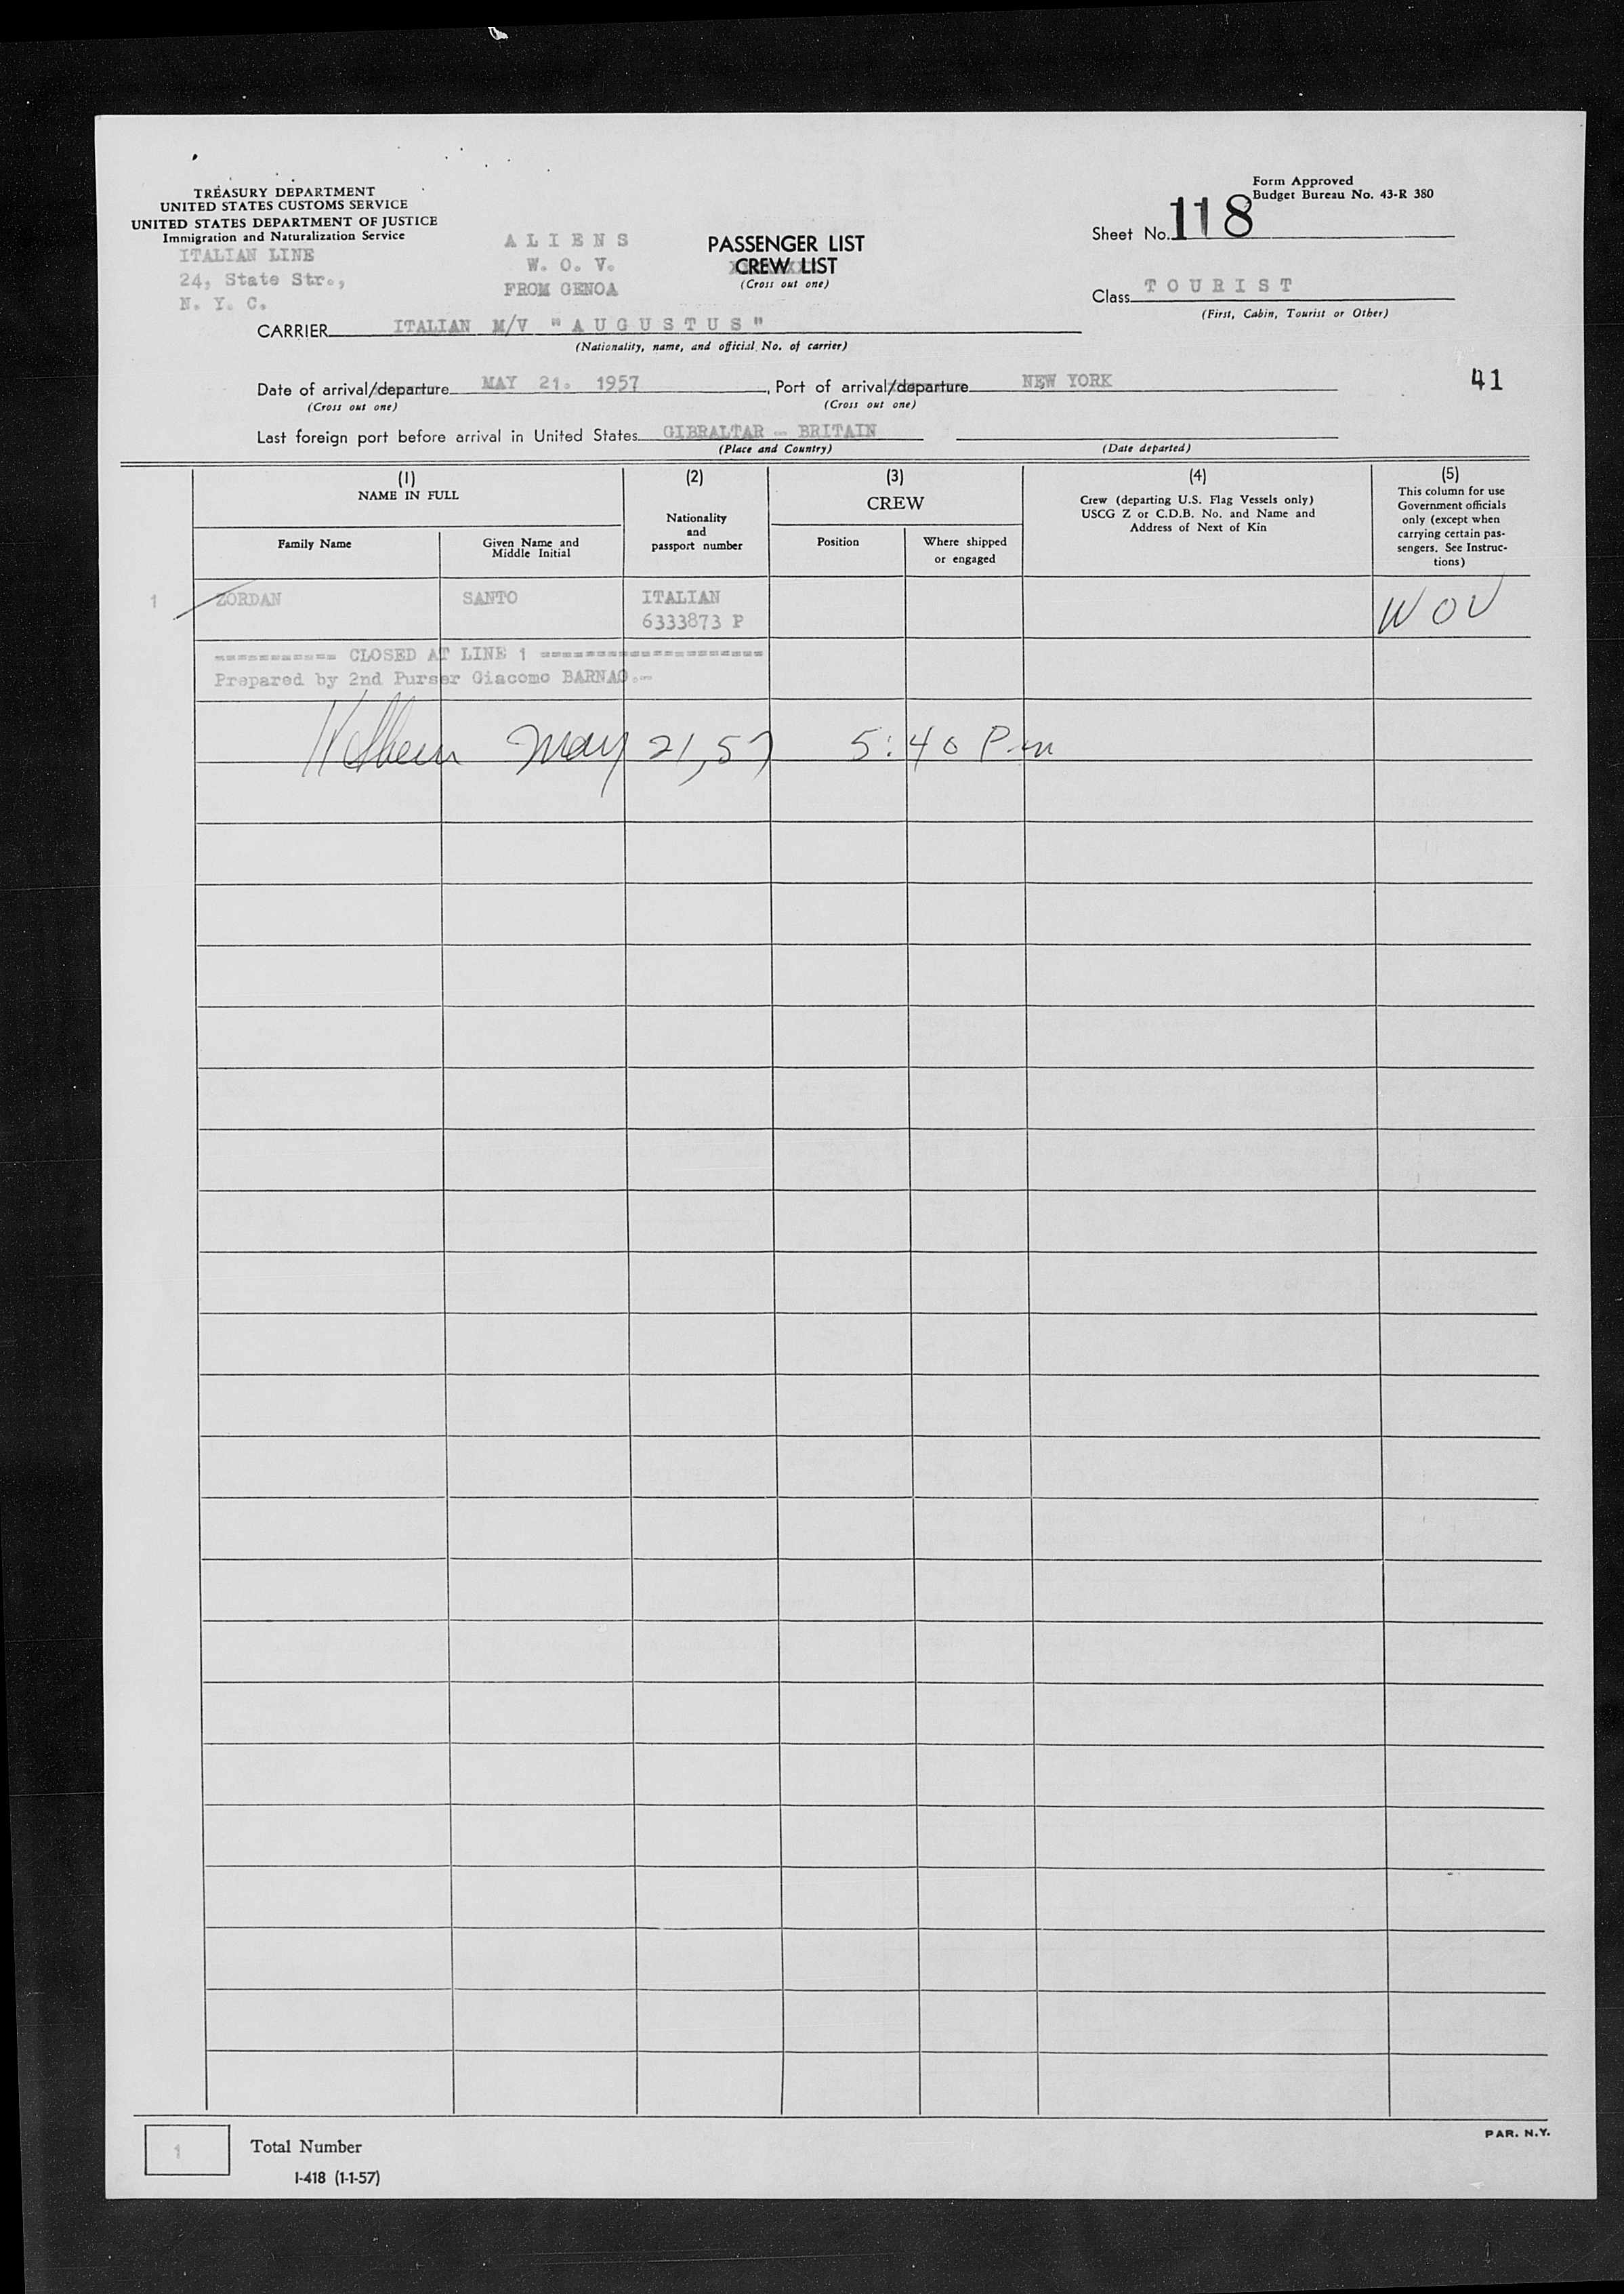 TREASURY DEPARTMENT
UNITED STATES CUSTOMS SERVICE
UNITED STATES DEPARTMENT OF JUSTICE
Immigration and Naturalization Service
ITALIAN LINE
24, State Str.,
N. Y. C.
A L I E N S
W. O. V.
FROM GENOA
PASSENGER LIST
CREW LIST
(Cross out one)
Form Approved
Budget Bureau No. 43-R 380
Sheet No. 118
Class T O U R I S T
(First, Cabin, Tourist or Other)
CARRIER ITALIAN M/V "A U G U S T U S"
(Nationality, name, and official No. of carrier)
Date of arrival/departure MAY 21. 1957, Port of arrival/departure NEW YORK
(Cross out one) (Cross out one)
41
Last foreign port before arrival in United States GIBRALTAR - BRITAIN
(Place and Country) (Date departed)
(1)
NAME IN FULL
Family Name
Given Name and
Middle Initial
(2)
Nationality
and
passport number
(3)
CREW
Position
Where shipped
or engaged
(4)
Crew (departing U.S. Flag Vessels only)
USCG Z or C.D.B. No. and Name and
Address of Next of Kin
(5)
This column for use
Government officials
only (except when
carrying certain pas-
sengers. See Instruc-
tions)
1 ZORDAN SANTO ITALIAN WOV
6333873 P
=========== CLOSED AT LINE 1 ====================
Prepared by 2nd Purser Giacomo BARNAO.--
May 21, 57 5:40 Pm
1 Total Number
I-418 (1-1-57)
PAR. N.Y.